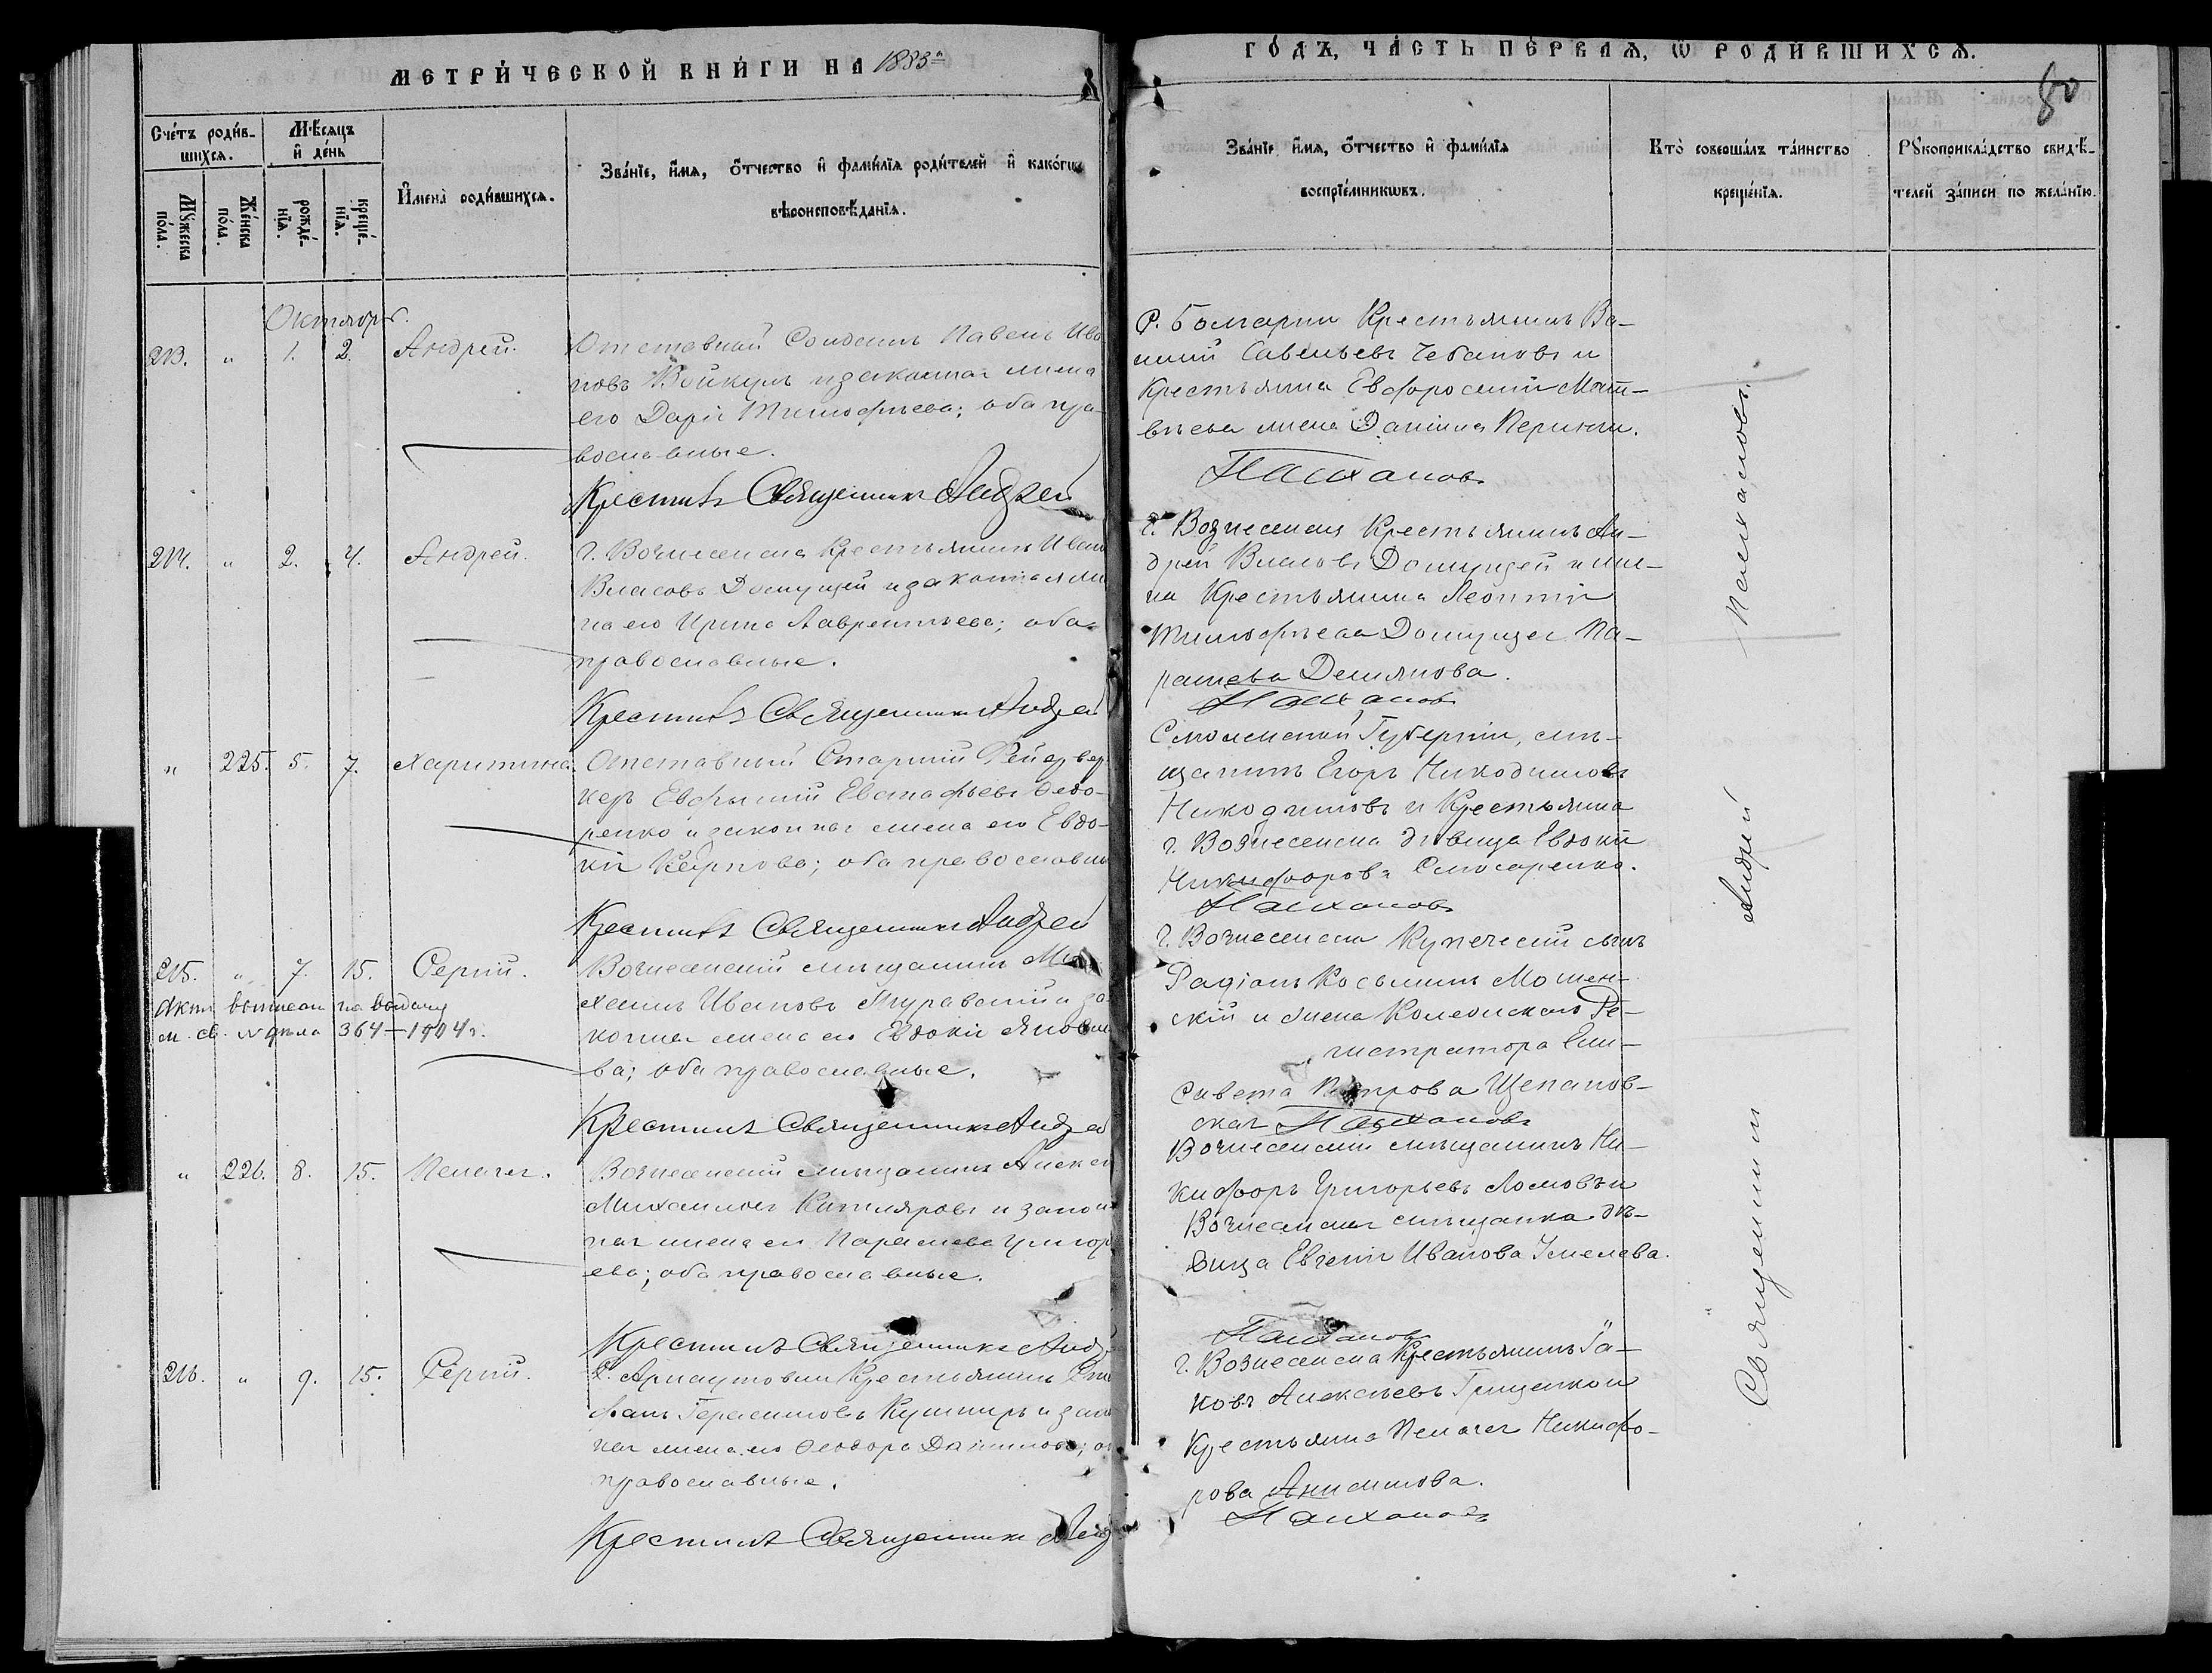 МЕТРИ́ЧЕСКОЙ КНИ́ГИ НА 1883й
ГО́ДЪ, ЧА́СТЬ ПЕ́РВАѦ, Ѿ РОДИ́ВШИХСѦ.
80
Сче́тъ роди́в-
шихсѧ.
Му́жеска по́ла.
Же́нска по́ла.
Мѣ́сяцъ и де́нь
рожде́-нїѧ.
креще́-нїѧ.
И҆мена̀ роди́вшихсѧ.
Зва́нїе, и҆́мѧ, ѻ҆́тчество и҆ фами́лїѧ роди́телей и҆ како́гѡ
вѣроисповѣ́данїѧ.
Зва́нїе, и҆́мѧ, ѻ҆́тчество и҆ фами́лїѧ
воспрїе́мникѡвъ.
Кто̀ соверша́лъ та́инство
креще́нїѧ.
Рꙋкоприкла́дство свидѣ́-
телей за́писи по жела́нїю.
Октябрь.
213. " 1. 2. Андрей.
Отставной Солдатъ Павелъ Ива
новъ Войкулъ и законная жена
его Дарія Тимофѣева; оба пра-
вославные.
Крестилъ Священникъ Андрей
Р. Болгарки Крестьянинъ Ва-
силій Савельевъ Чебановъ и
Крестьянка Евфросинія Мат-
вѣева жена Даніила
Палхановъ
214. " 2. 4. Андрей.
г. Вознесенска Крестьянинъ Иванъ
Власовъ Домущей и законная же
на его Ирина Лаврентьева; оба
православные.
Крестилъ Священникъ Андрей
г. Вознесенска Крестьянинъ Ан-
дрей Власовъ Домущей и же-
на Крестьянина Леонтія
Тимофѣева Домущея Па-
раскева Демянова.
Палхановъ
" 225. 5. 7. Харитина.
Отставный Старшій Фейервер
керъ Евфимій Евстафьевъ Федо-
ренко и законная жена его Евдо-
кія Карпова; оба православны
Крестилъ Священникъ Андрей
Смоленской Губерніи, мѣ-
щанинъ Егоръ Никодимовъ
Никодимовъ и Крестьянка
г. Вознесенска дѣвица Евдокія
Никифорова Слюсаренко.
Палхановъ
215. " 7. 15. Сергій.
Вознесенскій мѣщанинъ Ми
хаилъ Ивановъ Муравскій и за
конная жена его Евдокія
ва; оба православные.
Актъ выписанъ на выдачу
м. св. № дѣла 364-1904г.
Крестилъ Священникъ Андрей
г. Вознесенска Купеческій сынъ
Радіонъ Косьминъ Мошен-
скій и жена Колежскаго Ре-
гистратора Ели-
савета Петрова Щепанов-
ская Палхановъ
" 226. 8. 15. Пелагея.
Вознесенскій мѣщанинъ Алексѣй
Михаиловъ Котляровъ и закон
ная жена его Параскева Григорь
ева; оба православные.
Крестилъ Священникъ Андр
Вознесенскій мѣщанинъ Ни-
кифоръ Григорьевъ Ломовъ и
Вознесенская мѣщанка дѣ-
вица Евгенія Иванова
Палхановъ
216. " 9. 15. Сергій.
С. Арнаутовки Крестьянинъ Сте
фанъ Герасимовъ Кушниръ и закон
ная жена его Феодора Данилова; об
православные.
Крестилъ Священникъ Анд
г. Вознесенска Крестьянинъ Іа-
ковъ Алексѣевъ Грищенко и
Крестьянка Пелагея Никифо-
рова Анисимова.
Палхановъ
Священникъ Андрей Палхановъ